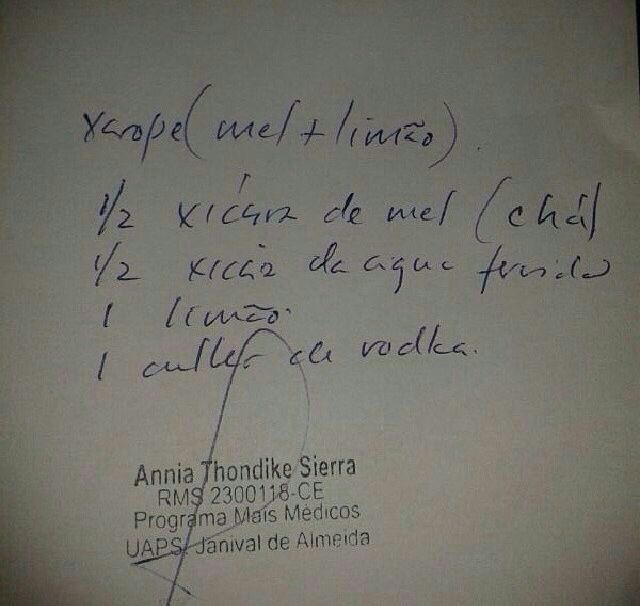 xarope (mel + limão).
1/2 xícara de mel (chá)
1/2 xicão da agua fervida
1 limão.
1 culher de vodka.
Annia Thondike Sierra
RMS 2300118-CE
Programa Mais Médicos
UAPS: Janival de Almeida